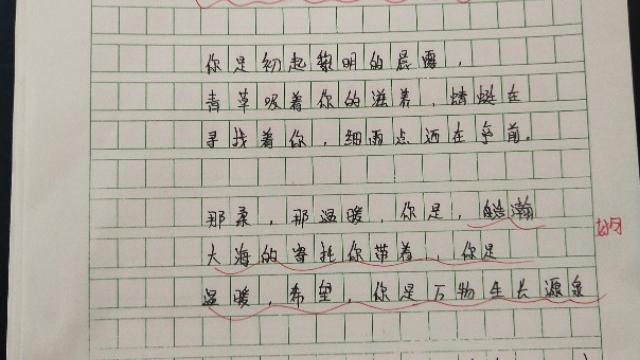 你是初起黎明的晨露，
青草吸着你的滋养，蜻蜓在
寻找着你，细雨点洒在争前。
那柔，那温暖，你是，皓瀚
大海的寄托你带着，你是
温暖，希望，你是万物生长源泉